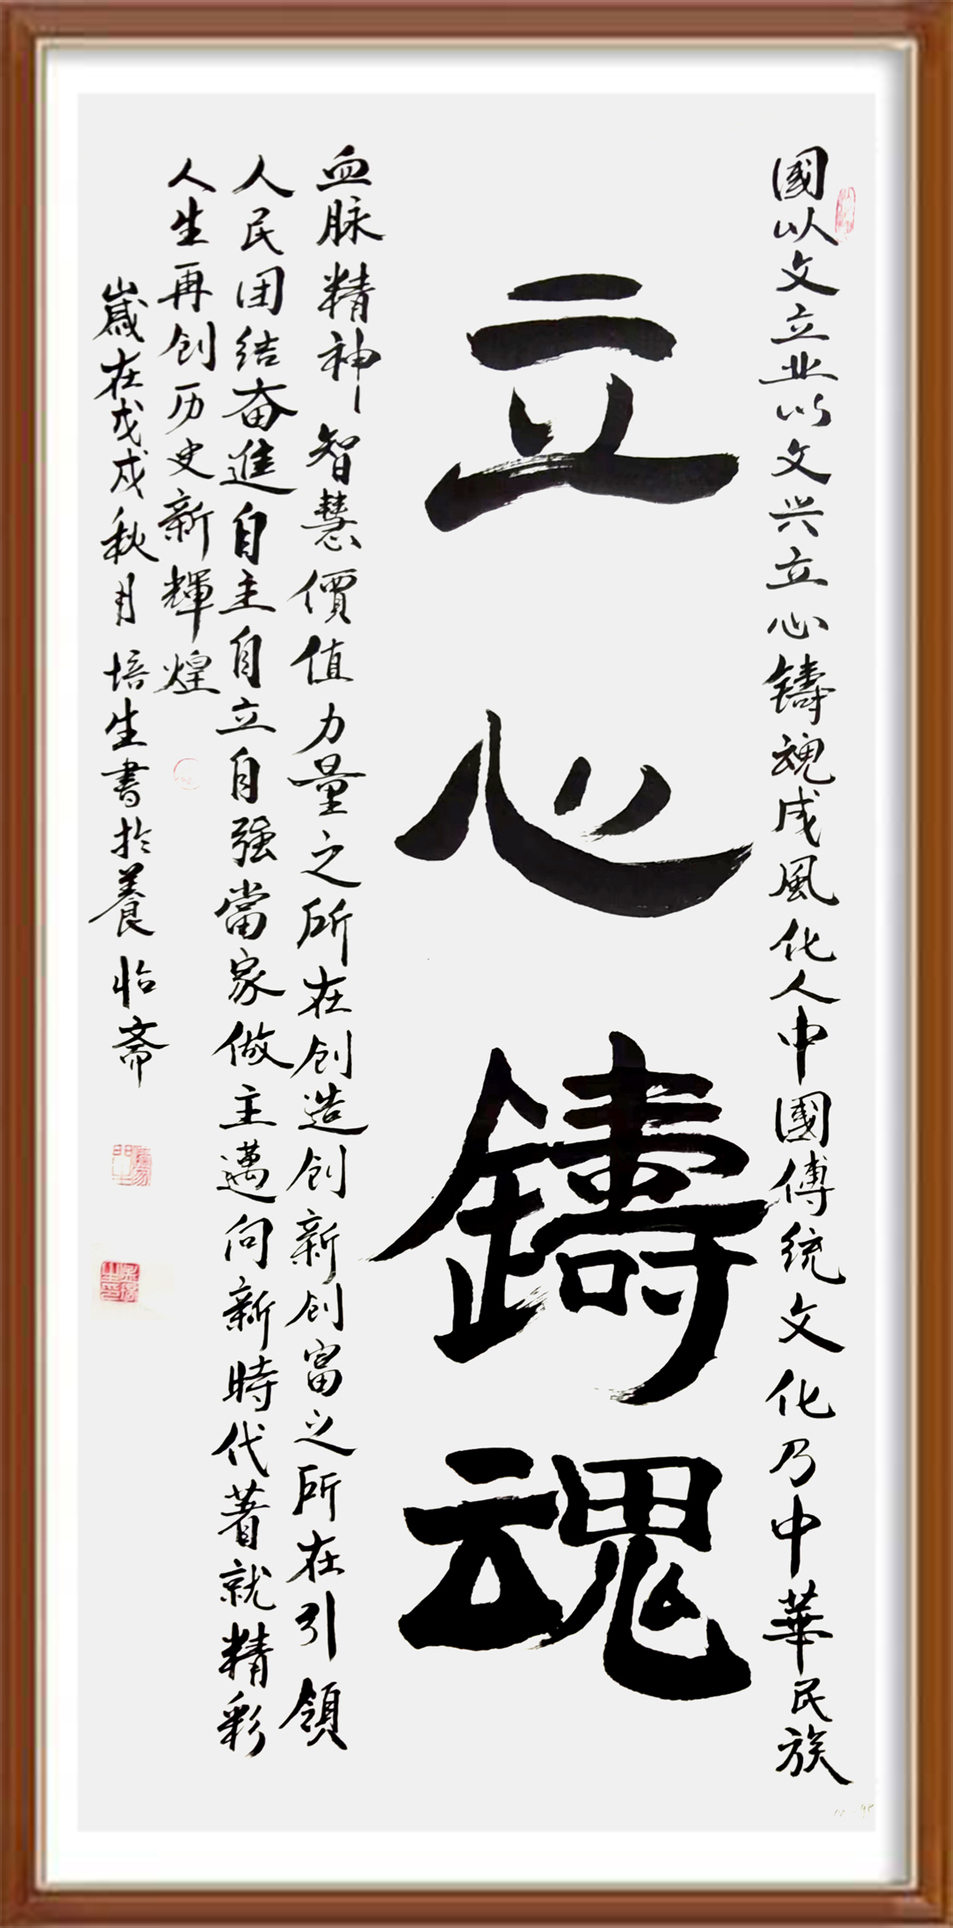 國以文立业以文兴立心鑄魂成風化人中國傳统文化乃中華民族
立心鑄魂
血脉精神智慧價值力量之所在创造创新创富之所在引領
人民团结奋進自主自立自强當家做主邁向新時代著就精彩
人生再创历史新輝煌
歲在戊戌秋月培生書於養怡斋